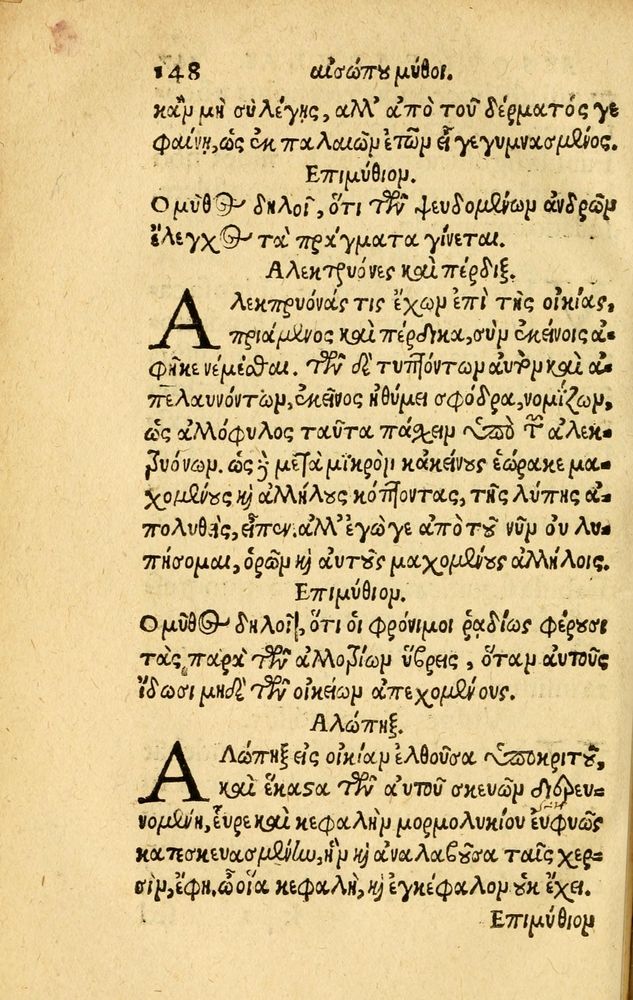 148 αἰσώπου μύθοι.
κἂν μὴ σὺ λέγῃς, ἀλλ' ἀπὸ τοῦ δέρματός γε
φαίνῃ, ὡς ἐκ παλαιῶν ἐτῶν εἶ γεγυμνασμένος.
Επιμύθιον.
Ο μῦθος δηλοῖ, ὅτι τῶν ψευδομένων ἀνδρῶν
ἔλεγχος τὰ πράγματα γίνεται.
Αλεκτρυόνες καὶ πέρδιξ.
Αλεκτρυόνάς τις ἔχων ἐπὶ τῆς οἰκίας,
πριάμενος καὶ πέρδικα, σὺν ἐκείνοις ἀ-
φῆκε νέμεσθαι. τῶν δὲ τυπτόντων αὐτὸν καὶ ἀ-
πελαυνόντων, ἐκεῖνος ἠθύμει σφόδρα, νομίζων,
ὡς ἀλλόφυλος ταῦτα πάσχειν ὑπὸ τῶν ἀλεκ-
τρυόνων. ὡς δὲ μετὰ μικρὸν κἀκείνους ἑώρακε μα-
χομένους καὶ ἀλλήλους κόπτοντας, τῆς λύπης ἀ-
πολυθεὶς, εἶπεν. ἀλλ' ἐγώ γε ἀπὸ τοῦ νῦν οὐ λυ-
πήσομαι, ὁρῶν καὶ αὐτοὺς μαχομένους ἀλλήλοις.
Επιμύθιον.
Ο μῦθος δηλοῖ, ὅτι οἱ φρόνιμοι ῥᾳδίως φέρουσι
τὰς παρὰ τῶν ἀλλοτρίων ὕβρεις, ὅταν αὐτοὺς
ἴδωσι μηδὲ τῶν οἰκείων ἀπεχομένους.
Αλώπηξ.
Αλώπηξ εἰς οἰκίαν ἐλθοῦσα ὑποκριτοῦ,
καὶ ἕκαστα τῶν αὐτοῦ σκευῶν διερευ-
νομένη, εὗρε καὶ κεφαλὴν μορμολυκίου εὐφυῶς
κατεσκευασμένην, ἣν καὶ ἀναλαβοῦσα ταῖς χερ-
σὶν, ἔφη, ὢ οἵα κεφαλὴ, καὶ ἐγκέφαλον οὐκ ἔχει.
Επιμύθιον